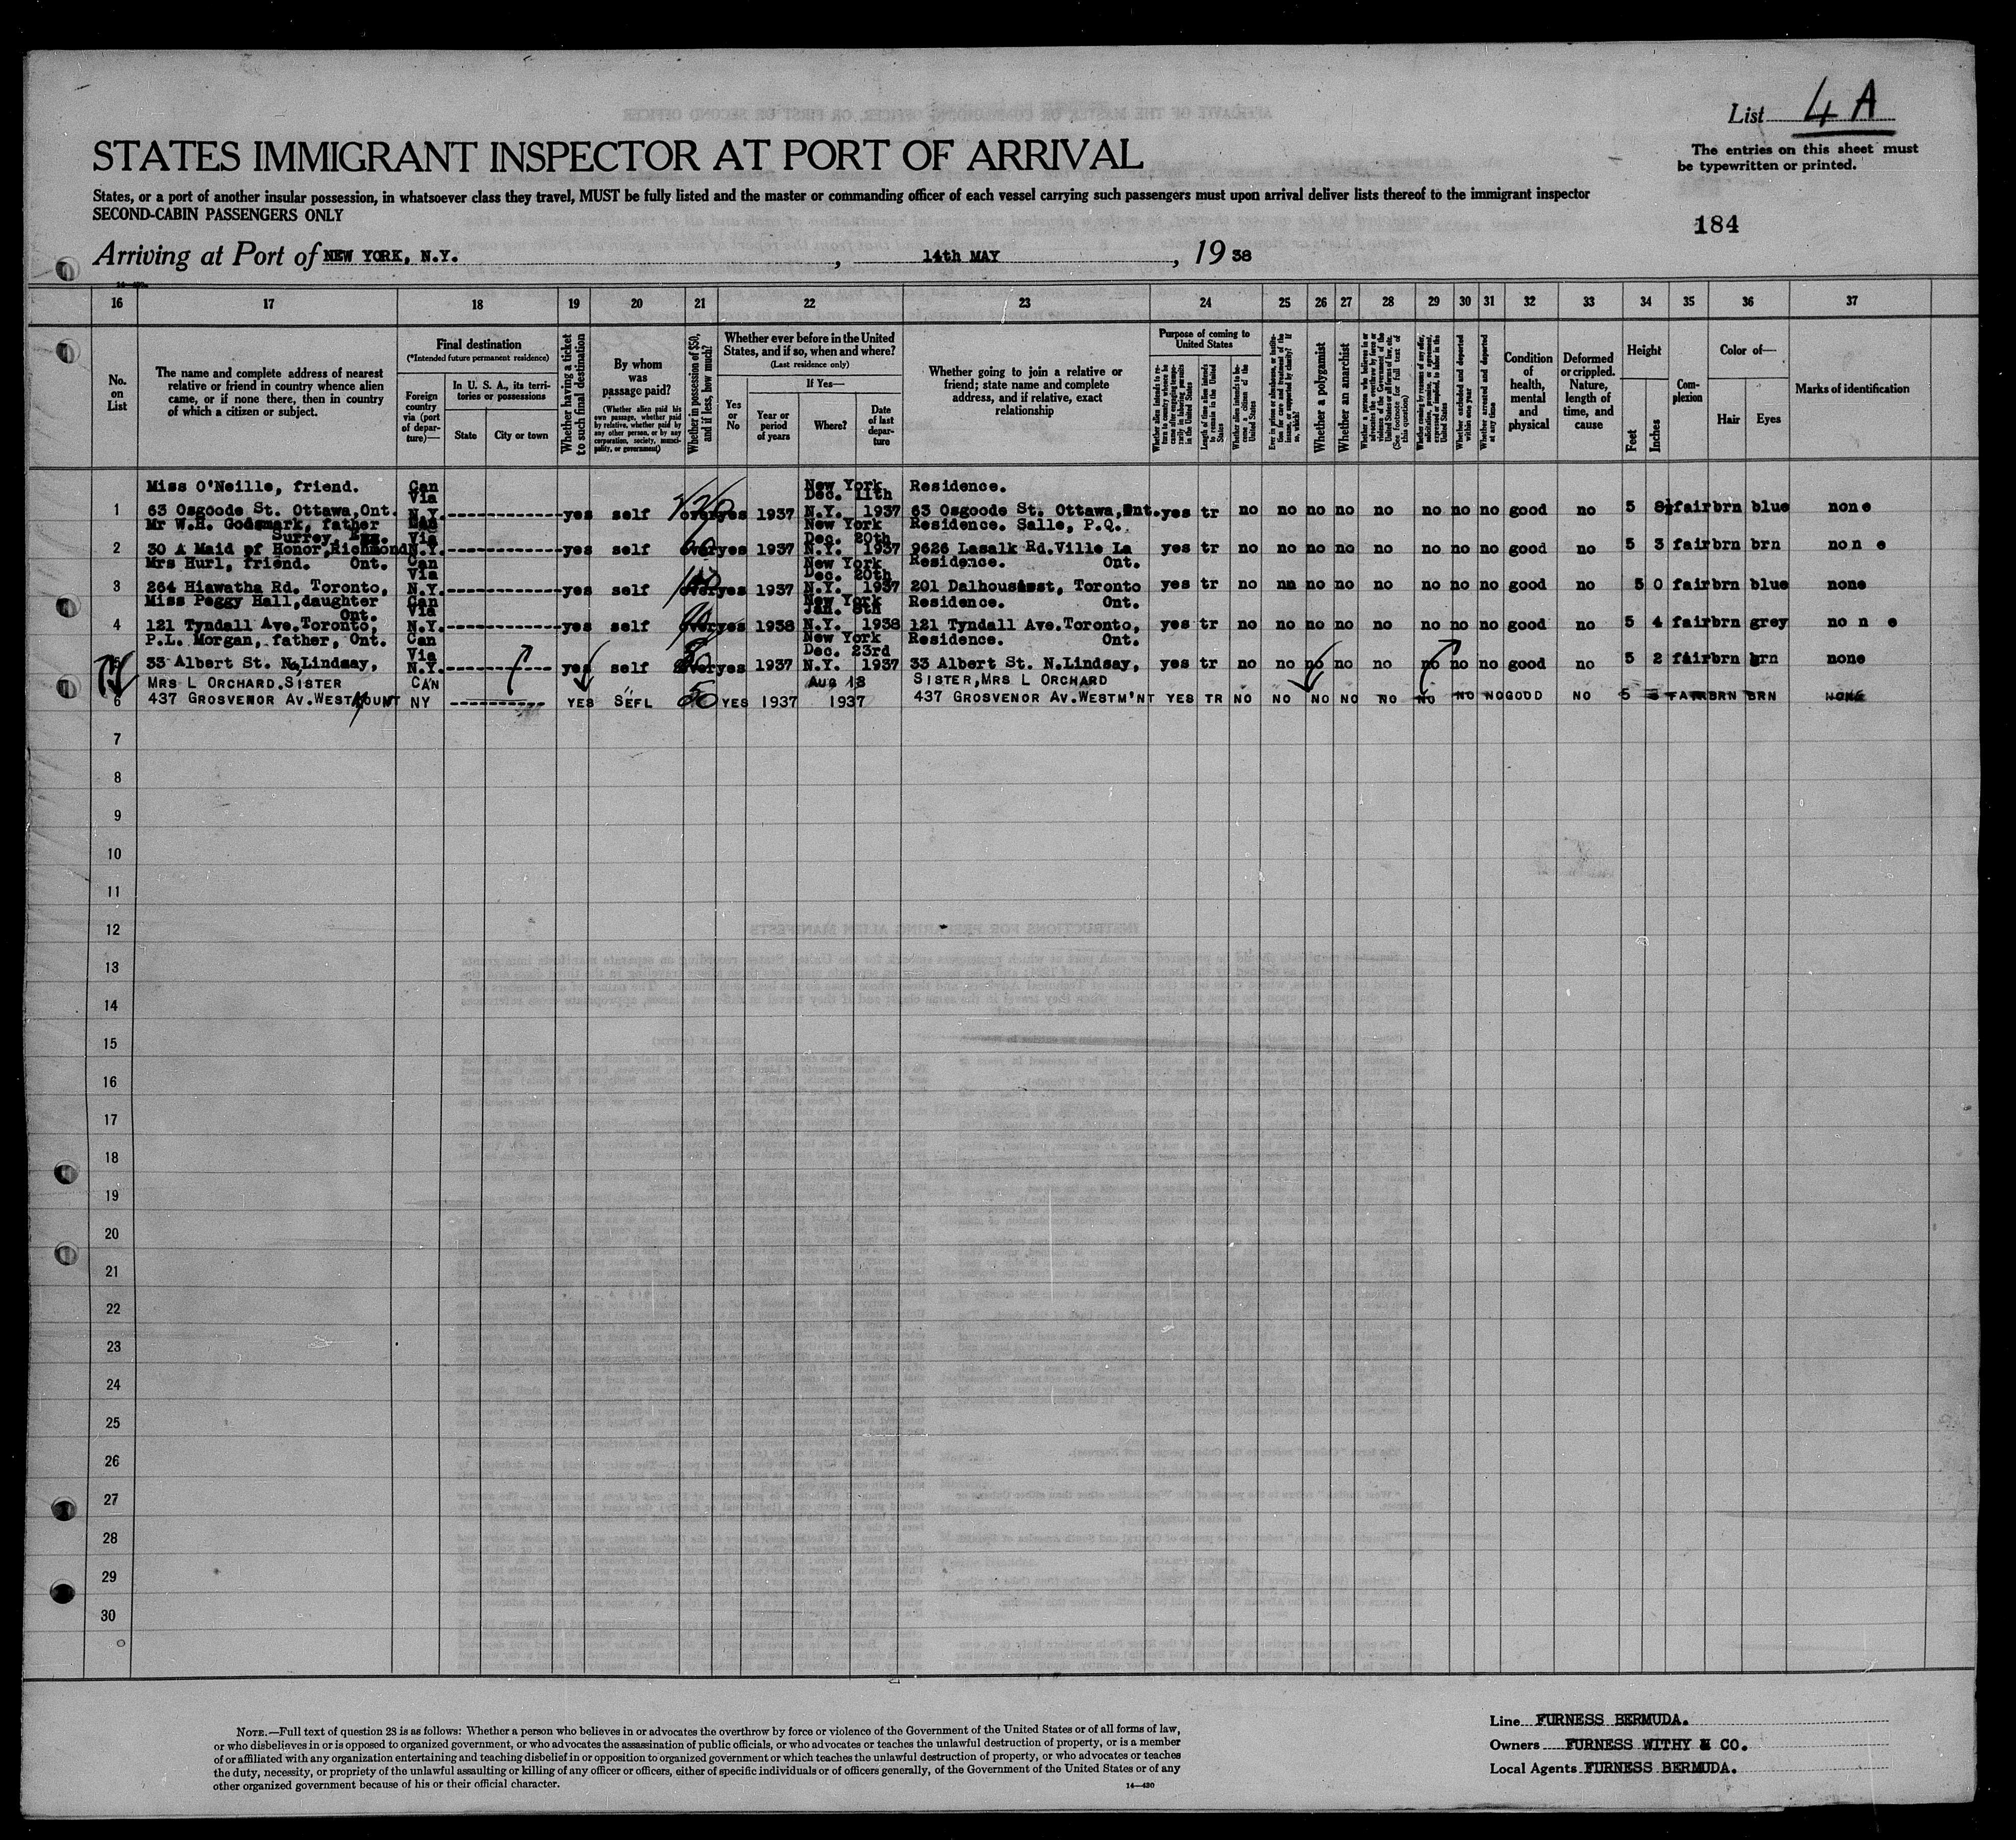 List 4 A
The entries on this sheet must
be typewritten or printed.
STATES IMMIGRANT INSPECTOR AT PORT OF ARRIVAL
States, or a port of another insular possession, in whatsoever class they travel, MUST be fully listed and the master or commanding officer of each vessel carrying such passengers must upon arrival deliver lists thereof to the immigrant inspector
SECOND-CABIN PASSENGERS ONLY
184
Arriving at Port of NEW YORK, N.Y. , 14th MAY , 19 38
16 17 18 19 20 21 22 23 24 25 26 27 28 29 30 31 32 33 34 35 36 37
No. on List
The name and complete address of nearest
relative or friend in country whence alien
came, or if none there, then in country
of which a citizen or subject.
Final destination
(*Intended future permanent residence)
Foreign country via (port of departure)—
In U. S. A., its territories or possessions
State City or town
Whether having a ticket to such final destination
By whom was passage paid?
(Whether alien paid his own passage, whether paid by relative, whether paid by any other person, or by any corporation, society, municipality, or government)
Whether in possession of $50, and if less, how much?
Whether ever before in the United
States, and if so, when and where?
(Last residence only)
Yes or No
If Yes—
Year or period of years
Where?
Date of last departure
Whether going to join a relative or
friend; state name and complete
address, and if relative, exact
relationship
Purpose of coming to
United States
Length of time alien intends to remain in the United States
Whether alien intends to become a citizen of the United States
Whether a polygamist
Whether an anarchist
(See footnote for full text of this question)
Whether excluded and deported within one year
Whether arrested and deported at any time
Condition of health, mental and physical
Deformed or crippled. Nature, length of time, and cause
Height
Feet Inches
Complexion
Color of—
Hair Eyes
Marks of identification
Miss O'Neille, friend. Can Via New York Dec. 11th Residence.
1 63 Osgoode St. Ottawa,Ont. N.Y. yes self over yes 1937 N.Y. 1937 63 Osgoode St. Ottawa, Ont. yes tr no no no no no no no no good no 5 8½ fair brn blue none
Mr W.H. Godsmark, father Via New York Residence. Salle, P.Q.
Surrey, Eng. Dec. 20th
2 30 A Maid of Honor, Richmond N.Y. yes self over yes 1937 N.Y. 1937 9626 Lasalk Rd.Ville La yes tr no no no no no no no no good no 5 3 fair brn brn non e
Mrs Hurl, friend. Ont. Can Via New York Dec. 20th Residence. Ont.
3 264 Hiawatha Rd. Toronto, N.Y. yes self over yes 1937 N.Y. 1937 201 Dalhousest, Toronto yes tr no nn no no no no no no good no 5 0 fair brn blue none
Miss Peggy Hall,daughter Can Via New York Jan. 8th Residence. Ont.
Ont.
4 121 Tyndall Ave.Toronto, N.Y. yes self over yes 1938 N.Y. 1938 121 Tyndall Ave.Toronto, yes tr no no no no no no no no good no 5 4 fair brn grey no n e
P.L. Morgan, father, Ont. Can Via New York Dec. 23rd Residence. Ont.
5 33 Albert St. N.Lindsay, N.Y. yes self over yes 1937 N.Y. 1937 33 Albert St. N.Lindsay, yes tr no no no no no no no no good no 5 2 fair brn brn none
MRS L ORCHARD.SISTER CAN Aug 18 SISTER,MRS L ORCHARD
6 437 GROSVENOR AV.WESTMOUNT NY YES SEFL 50 YES 1937 1937 437 GROSVENOR AV.WESTM'NT YES TR NO NO NO NO NO NO NO NO GOOD NO 5 FAIR BRN BRN NONE
7
8
9
10
11
12
13
14
15
16
17
18
19
20
21
22
23
24
25
26
27
28
29
30
NOTE.—Full text of question 28 is as follows: Whether a person who believes in or advocates the overthrow by force or violence of the Government of the United States or of all forms of law,
or who disbelieves in or is opposed to organized government, or who advocates the assassination of public officials, or who advocates or teaches the unlawful destruction of property, or is a member
of or affiliated with any organization entertaining and teaching disbelief in or opposition to organized government or which teaches the unlawful destruction of property, or who advocates or teaches
the duty, necessity, or propriety of the unlawful assaulting or killing of any officer or officers, either of specific individuals or of officers generally, of the Government of the United States or of any
other organized government because of his or their official character.
14—430
Line FURNESS BERMUDA.
Owners FURNESS WITHY & CO.
Local Agents FURNESS BERMUDA.